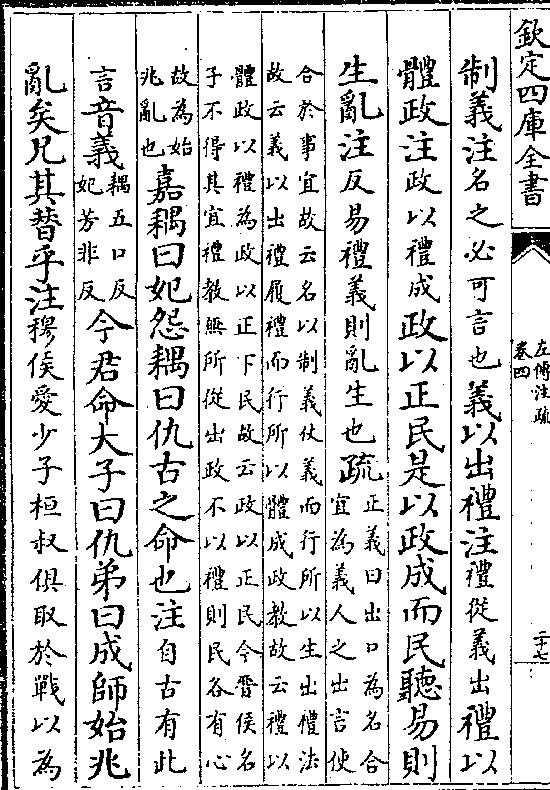 欽定四庫全書
左傳注疏
卷四
二十七
制義注名之必可言也義以出禮注禮從義出禮以
體政注政以禮成政以正民是以政成而民聽易則
生亂注反易禮義則亂生也疏正義曰出口為名合
宜為義人之出言使
合於事宜故云名以制義仗義而行所以生出禮法
故云義以出禮履禮而行所以體成政教故云禮以
體政以禮為政以正下民故云政以正民今晉侯名
子不得其宜禮教無所從出政不以禮則民各有心
故為始
兆亂也嘉耦曰妃怨耦曰仇古之命也注自古有此
言音義耦五口反
妃芳非反今君命大子曰仇弟曰成師始兆
亂矣兄其替乎注穆侯愛少子桓叔俱取於戰以為